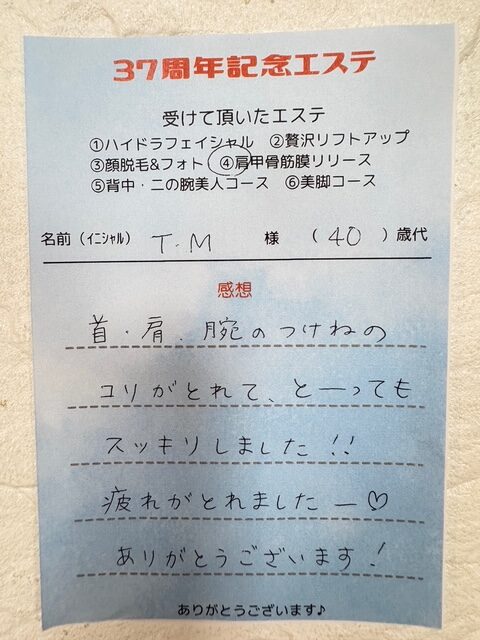 37周年記念エステ
受けて頂いたエステ
①ハイドラフェイシャル ②贅沢リフトアップ
③顔脱毛&フォト ④肩甲骨筋膜リリース
⑤背中・二の腕美人コース ⑥美脚コース
名前(イニシャル) T.M 様 (40)歳代
感想
首・肩、腕のつけねの
コリがとれて、とーっても
スッキリしました!!
疲れがとれましたー♡
ありがとうございます!
ありがとうございます♪